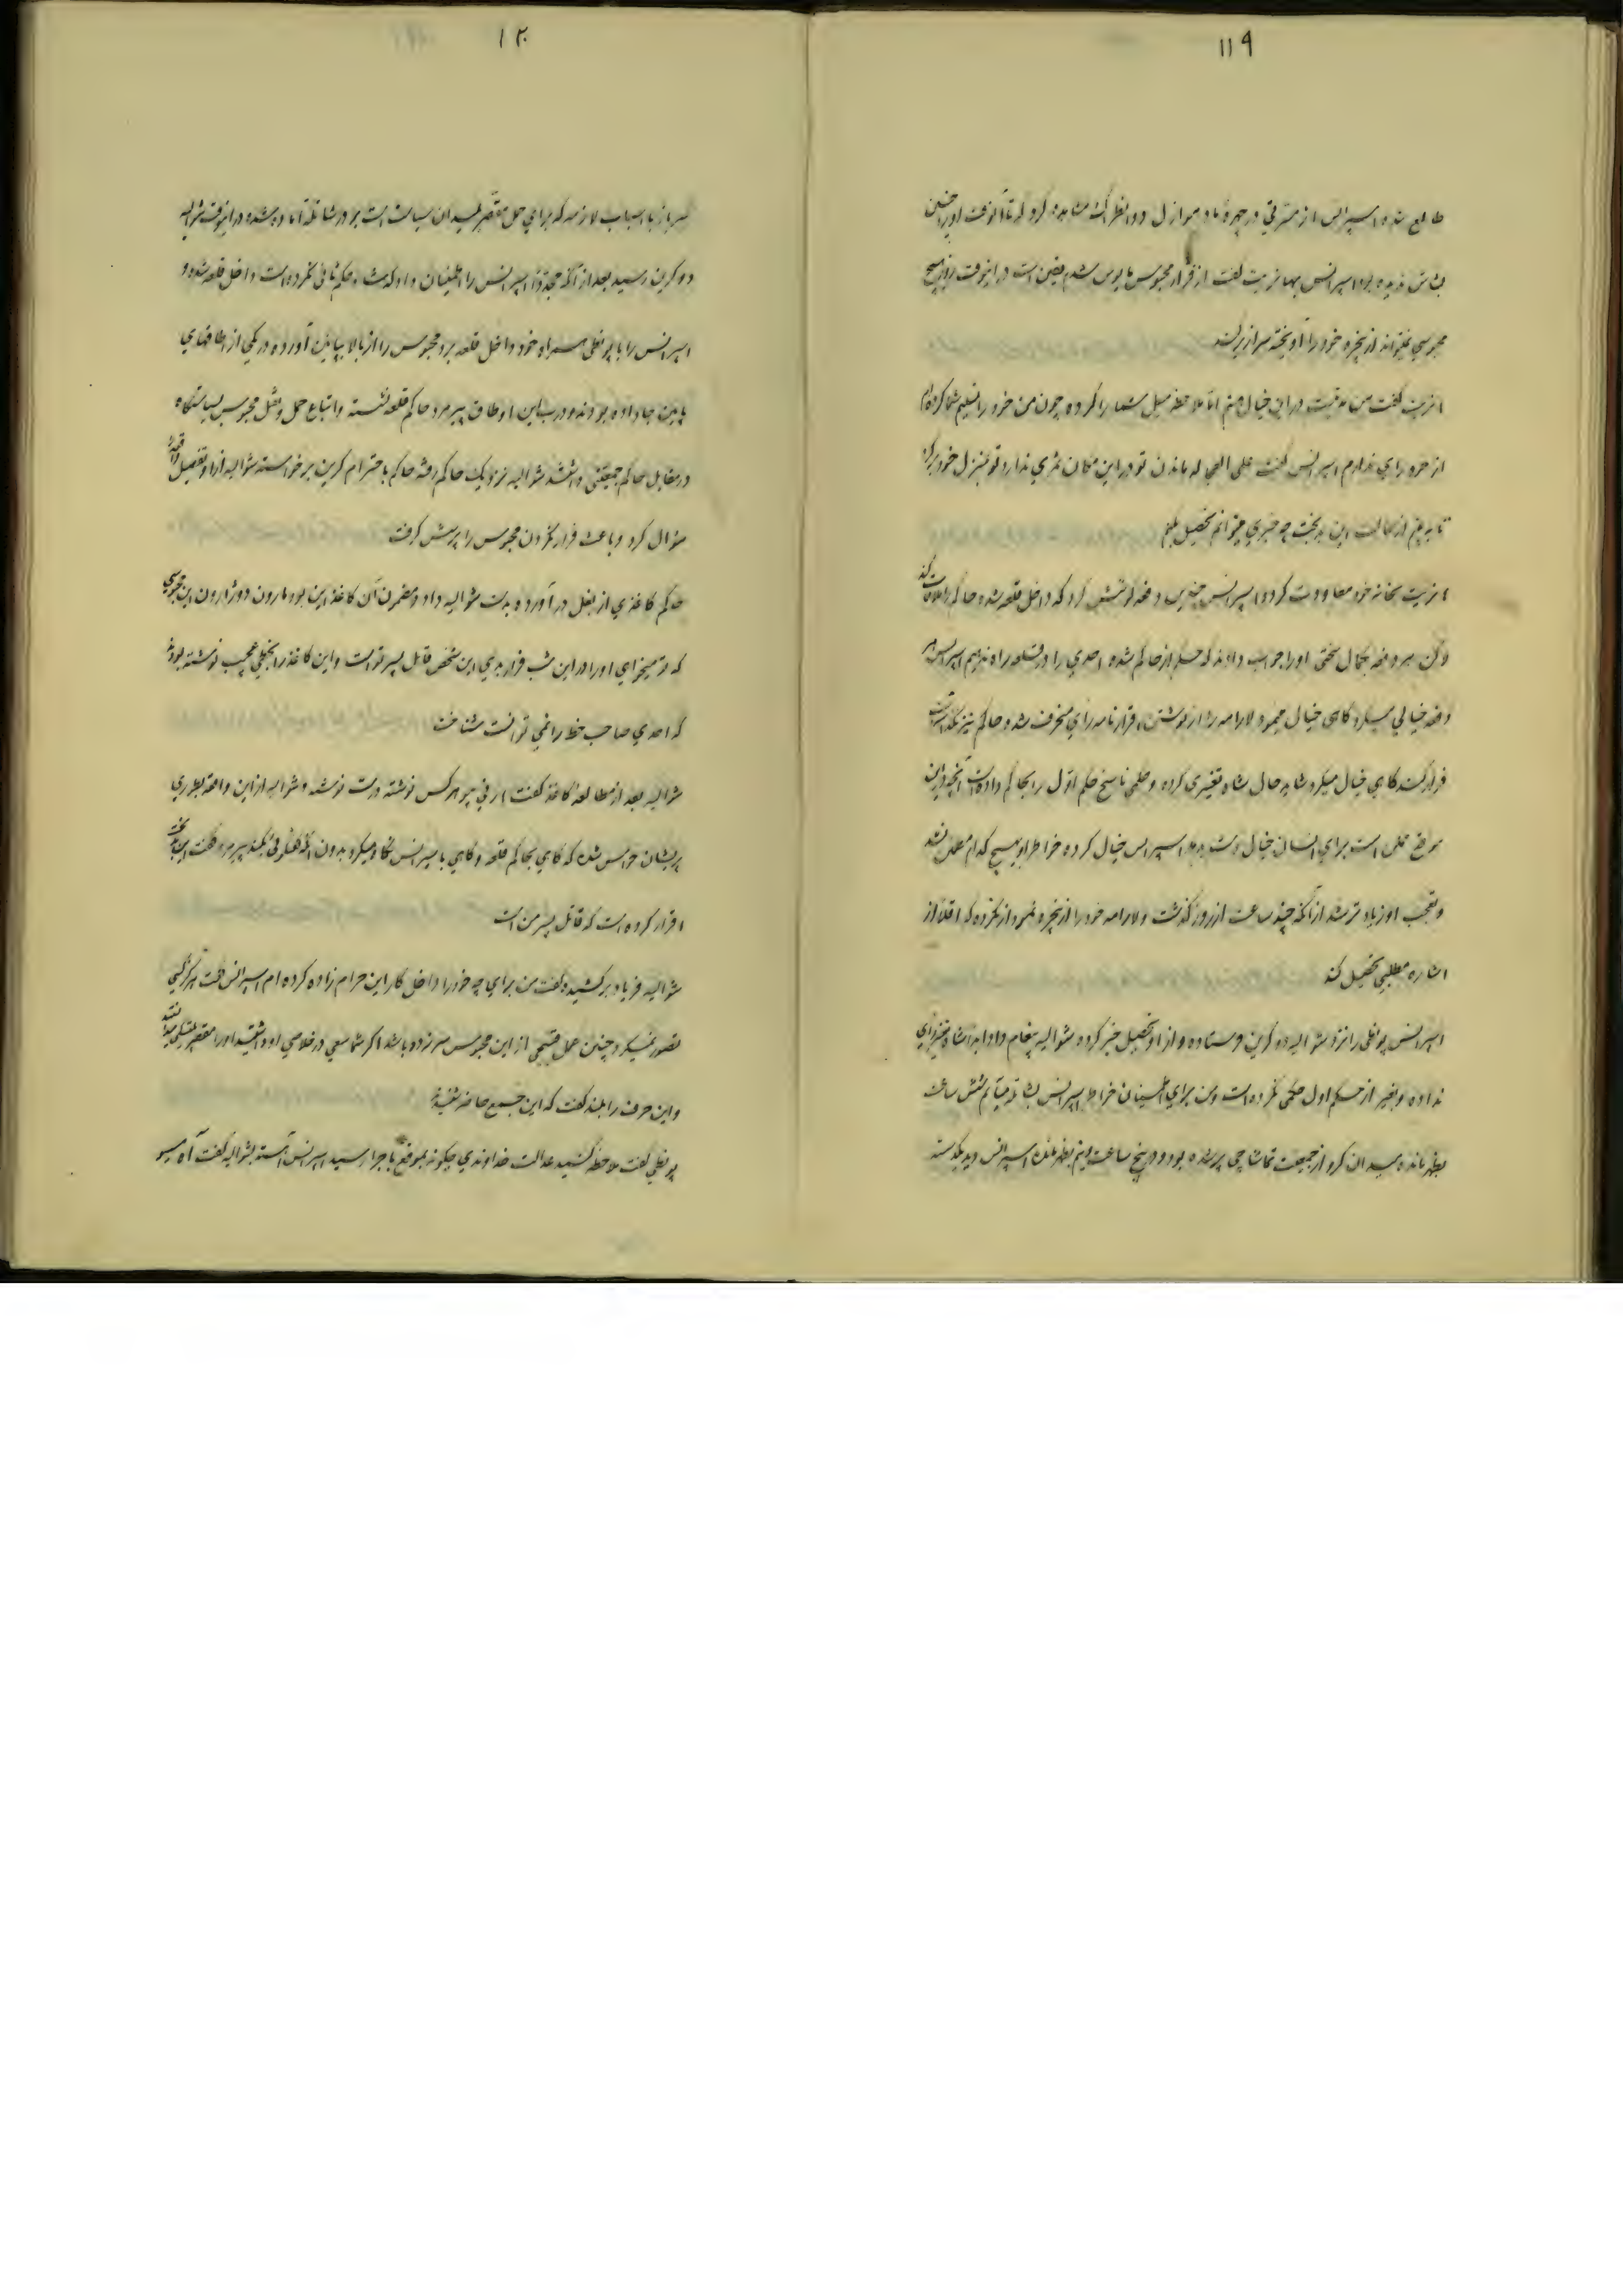 ۱۱۹
طالع شده اسپرانس از مسرتی در چهره مادموازل دو انظراگت مشاهده کرد که تا آنوقت او را چنین
بشاش ندیده بود اسپرانس بهانریت گفت از فرار محبوس مایوس شدم یقین است در اینوقت روز هیچ
محبوسی نمیتواند از پنجره خود را آویخته سرازیر کند
انریت گفت من مدتیست در این خیال هستم اما ملاحظه میل شما را کرده چون من خود را تسلیم شما کرده‌ام
از خود رای ندارم اسپرانس گفت علی العجاله ماندن تو در این مکان ثمری ندارد تو بمنزل خود برگرد
تا به بینم از حالت این بدبخت چه خبری میتوانم تحصیل بکنم
انریت بخانه خود معاودت کرد و اسپرانس چندین دفعه کوشش کرد که داخل قلعه شده حاکم را ملاقات کند
ولکن هر دفعه بکمال سختی او را جواب دادند که حکم از حاکم شده احدی را در قلعه راه ندهیم اسپرانس هر
دفعه خیالی میکرد گاهی خیال میکرد لارامه را از نوشتن قرارنامه رای منحرف شد و حاکم نیز نگذاشت
فرار کند گاهی خیال میکرد شاید حال شاه تغییری کرده و حکمی ناسخ حکم اول را بحاکم داده‌است آنچه در این
موقع ممکن است برای انسان خیال دست بدهد اسپرانس خیال کرده خاطر او بهیچ کدام مطمئن نشد
و تعجب او زیادتر شد از آنکه چند ساعت از روز گذشت و لارامه خود را از پنجره نمودار نکرده که اقلا از
اشاره مطلبی تحصیل کند
اسپرانس پونطی را نزد شوالیه دو کرین فرستاده و از او تحصیل خبر کرده شوالیه پیغام داد ابدا شاه تغییر رای
نداده و بغیر از حکم اول حکمی نکرده است و من برای اطمینان خاطر اسپرانس بشاتله میآیم شش ساعت
بظهر مانده میدان کرو از جمعیت تماشاچی پر شده بود و در پنج ساعت و نیم بظهر مانده اسپرانس دید یکدسته
۱۲۰
سرباز با اسباب لازمه که برای حمل مقصر بمیدان سیاست است بر در شاتله آماده شده در اینوقت شوالیه
دو کرین رسید بعد از آنکه مجددا اسپرانس را اطمینان داد که شاه حکم ثانی نکرده‌است داخل قلعه شده و
اسپرانس را با پونطی همراه خود داخل قلعه برد محبوس را از بالا بپائین آورده در یکی از اطاقهای
پائین جا داده بودند و درب این اوطاق پیرمرد حاکم قلعه نشسته و اتباع حمل و نقل محبوس بسیاستگاه
در مقابل حاکم جمعیتی داشتند شوالیه نزدیک حاکم رفته حاکم باحترام کرین برخواسته شوالیه از او تفصیل واقعه را
سؤال کرد و باعث فرار نکردن محبوس را پرسش گرفت
حاکم کاغذی از بغل در آورده بدست شوالیه داد و مضمون آن کاغذ این بود مارون دوژارون این محبوسی
که تو میخواهی او را در این شب فرار بدهی این شخص قاتل پسر تو است و این کاغذ را بخطی عجیب نوشته بود
که احدی صاحب خط را نمی توانست شناخت
شوالیه بعد از مطالعه کاغذ گفت ارنی پیر هر کس نوشته درست نوشته و شوالیه از این واقعه بطوری
پریشان حواس شده که گاهی بحاکم قلعه و گاهی باسپرانس نگاه میکرد بدون آنکه تکلمی بکند پیرمرد گفت این بدبخت
اقرار کرده است که قاتل پسر من است
شوالیه فریاد برکشیده گفت من برای چه خود را داخل کار این حرام زاده کرده‌ام اسپرانس گفت هرگز کسی
تصور نمیکرد چنین عمل قبیحی از این محبوس سر زده باشد اگر شما سعی در خلاصی او داشتید او را مقصر
و این حرف را بلند گفت که این جمیع حاضر شنیدند
پونطی گفت ملاحظه کنید عدالت خداوندی چگونه بموقع باجرا رسید اسپرانس آهسته بشوالیه گفت آه مسیو